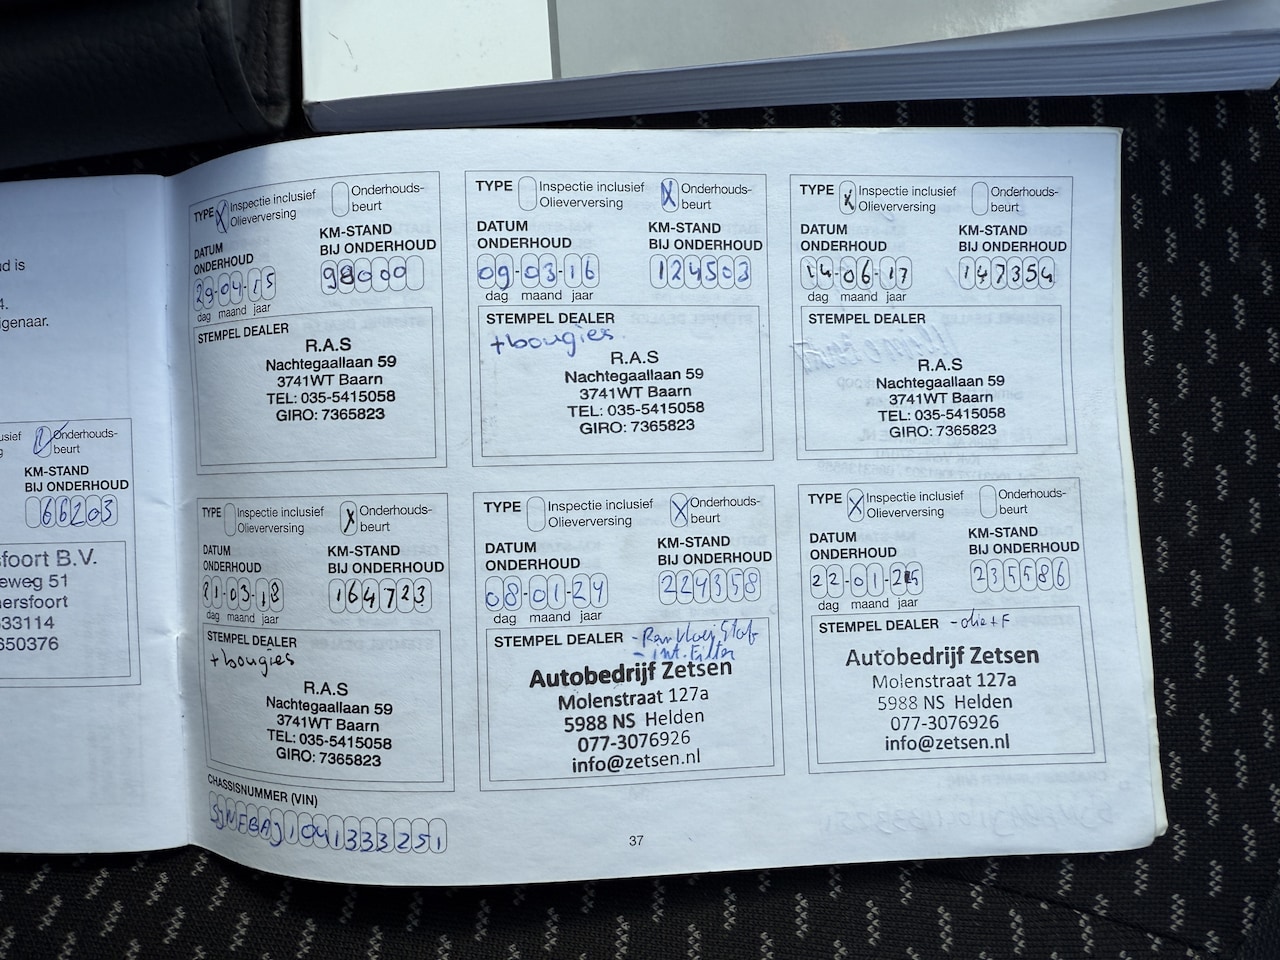 d is
4.
igenaar.
usief Onderhouds-
g beurt
KM-STAND
BIJ ONDERHOUD
66203
sfoort B.V.
eweg 51
ersfoort
33114
650376
TYPE X Inspectie inclusief Olieverversing Onderhouds-beurt
DATUM ONDERHOUD
KM-STAND BIJ ONDERHOUD
29-04-15 98000
dag maand jaar
STEMPEL DEALER
R.A.S
Nachtegaallaan 59
3741WT Baarn
TEL: 035-5415058
GIRO: 7365823
TYPE Inspectie inclusief Olieverversing X Onderhouds-beurt
DATUM ONDERHOUD
KM-STAND BIJ ONDERHOUD
09-03-16 124503
dag maand jaar
STEMPEL DEALER
+bougies
R.A.S
Nachtegaallaan 59
3741WT Baarn
TEL: 035-5415058
GIRO: 7365823
TYPE X Inspectie inclusief Olieverversing Onderhouds-beurt
DATUM ONDERHOUD
KM-STAND BIJ ONDERHOUD
14-06-17 147354
dag maand jaar
STEMPEL DEALER
R.A.S
Nachtegaallaan 59
3741WT Baarn
TEL: 035-5415058
GIRO: 7365823
TYPE Inspectie inclusief Olieverversing X Onderhouds-beurt
DATUM ONDERHOUD
KM-STAND BIJ ONDERHOUD
21-03-18 164723
dag maand jaar
STEMPEL DEALER
+bougies
R.A.S
Nachtegaallaan 59
3741WT Baarn
TEL: 035-5415058
GIRO: 7365823
TYPE Inspectie inclusief Olieverversing X Onderhouds-beurt
DATUM ONDERHOUD
KM-STAND BIJ ONDERHOUD
08-01-24 224358
dag maand jaar
STEMPEL DEALER
- int. Filter
Autobedrijf Zetsen
Molenstraat 127a
5988 NS Helden
077-3076926
info@zetsen.nl
TYPE X Inspectie inclusief Olieverversing Onderhouds-beurt
DATUM ONDERHOUD
KM-STAND BIJ ONDERHOUD
22-01-25 235586
dag maand jaar
STEMPEL DEALER - olie+F
Autobedrijf Zetsen
Molenstraat 127a
5988 NS Helden
077-3076926
info@zetsen.nl
CHASSISNUMMER (VIN)
SJNFBAJ10U1333251
37